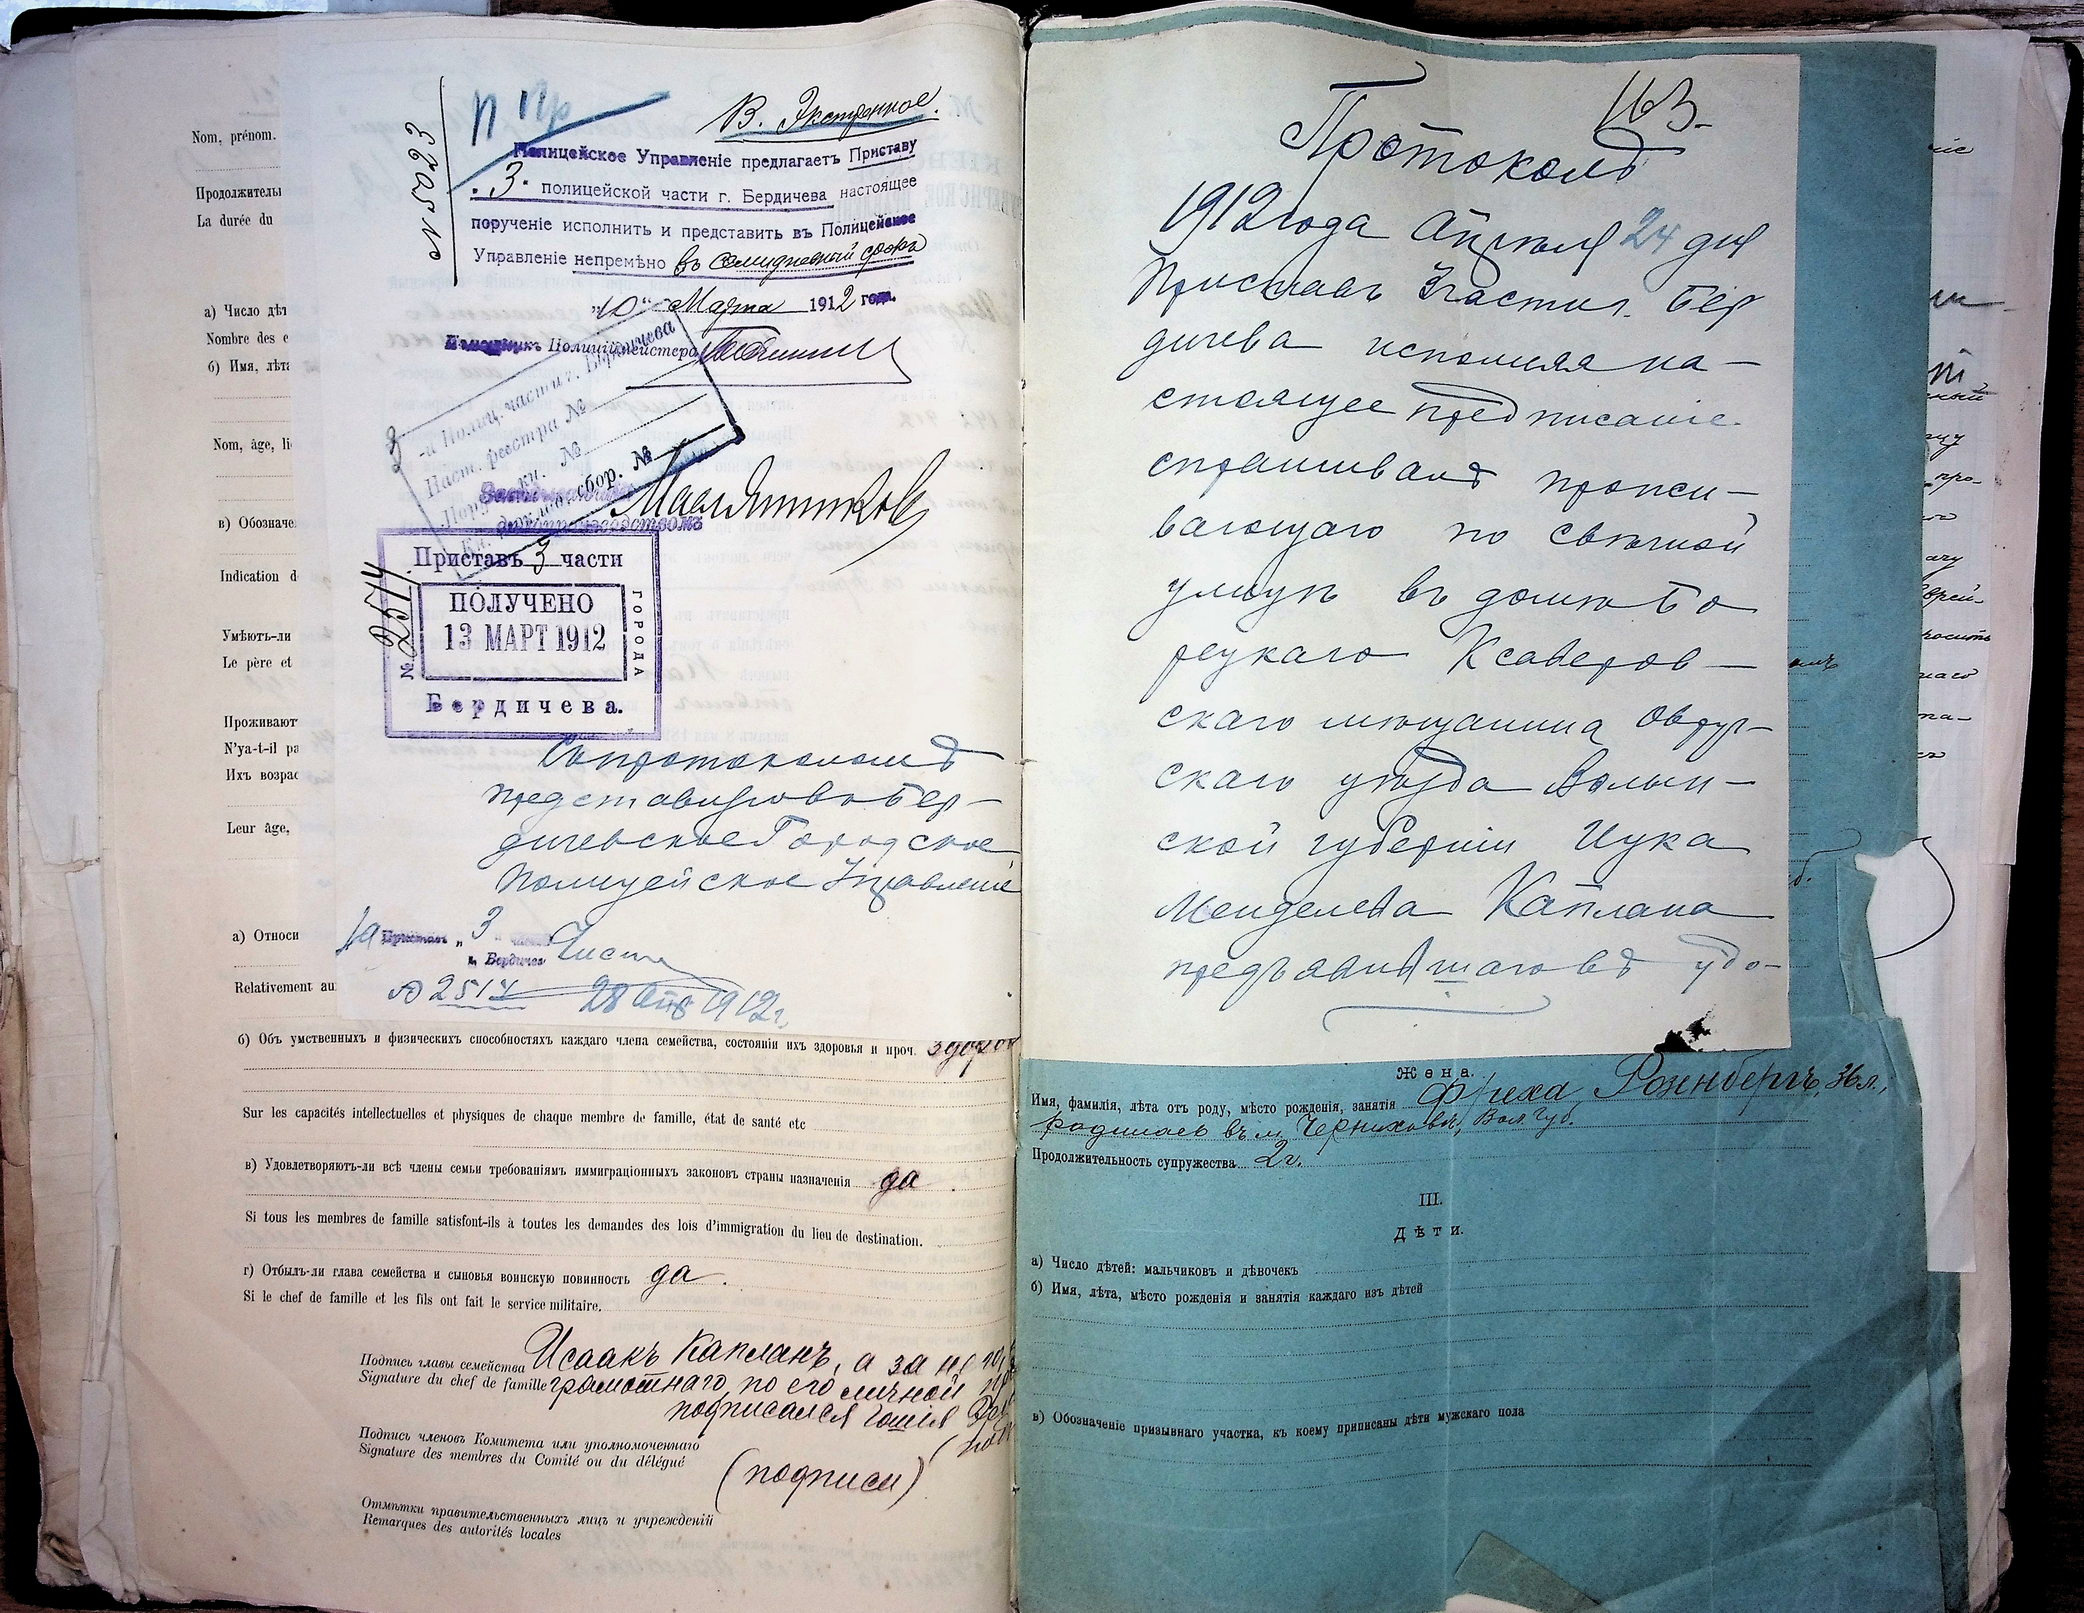 № 5023
В. Экстренное.
Полицейское Управленіе предлагаетъ Приставу
"3" полицейской части г. Бердичева настоящее
порученіе исполнить и представить въ Полицейское
Управленіе непремѣно въ семидневный срокъ
"10" Марта 1912 года.
Полиціймейстера
3-й Полиц. части г. Бердичева
Наст. реестра №
кн. №
сбор. №
Приставъ 3 части
ПОЛУЧЕНО
13 МАРТ 1912
ГОРОДА
№ 2514
Бердичева.
Съ протоколомъ
представляю въ Бер-
дичевское Городское
Полицейское Управленіе
Приставъ "3" части
г. Бердичева
№ 2514 28 Апр 1912 г.
Nom, prénom.
Продолжитель
La durée du
а) Число дѣт
Nombre des e
б) Имя, лѣта
Nom, âge, li
в) Обозначе
Indication d
Умѣютъ-ли
Le père et
Проживают
N'ya-t-il pa
Ихъ возрас
Leur âge,
а) Относи
Relativement au
б) Объ умственныхъ и физическихъ способностяхъ каждаго члена семейства, состояніи ихъ здоровья и проч. здоров
Sur les capacités intellectuelles et physiques de chaque membre de famille, état de santé etc
в) Удовлетворяютъ-ли всѣ члены семьи требованіямъ иммиграціонныхъ законовъ страны назначенія да.
Si tous les membres de famille satisfont-ils à toutes les demandes des lois d'immigration du lieu de destination.
г) Отбылъ-ли глава семейства и сыновья воинскую повинность да.
Si le chef de famille et les fils ont fait le service militaire.
Подпись главы семейства Исаакъ Капланъ, а за не
Signature du chef de famille грамотнаго по его личной
подписался
Подпись членовъ Комитета или уполномоченнаго
Signature des membres du Comité ou du délégué
(подписи)
Отмѣтки правительственныхъ лицъ и учрежденій
Remarques des autorités locales
163.
Протоколъ
1912 года Апрѣля 24 дня
Приставъ 3 части г. Бер
дичева исполняя на-
стоящее предписаніе
спрашивалъ прожи-
вающаго по Свѣчной
улицѣ въ домѣ Бо
рецкаго Ксаверов-
скаго мѣщанина Овруч-
скаго уѣзда Волын-
ской губерніи Ицка
Менделева Каплана
предъявившаго въ удо-
Жена.
Имя, фамилія, лѣта отъ роду, мѣсто рожденія, занятія Фрэха Розенбергъ, 36 л.,
родилась въ м. Черняховѣ, Вол. Губ.
Продолжительность супружества 2 г.
III.
Дѣти.
а) Число дѣтей: мальчиковъ и дѣвочекъ
б) Имя, лѣта, мѣсто рожденія и занятія каждаго изъ дѣтей
в) Обозначеніе призывнаго участка, къ коему приписаны дѣти мужскаго пола